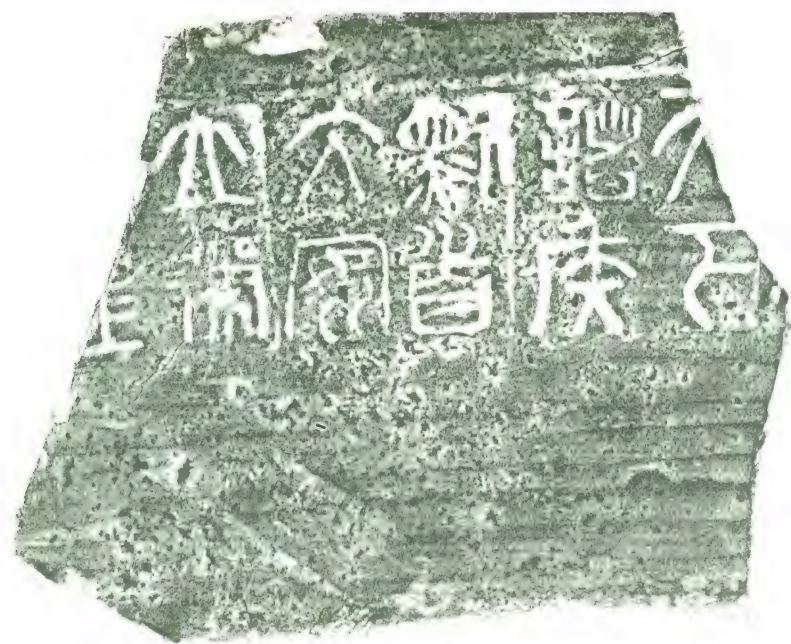 天下
諸侯
黔首
大安
立號
皇